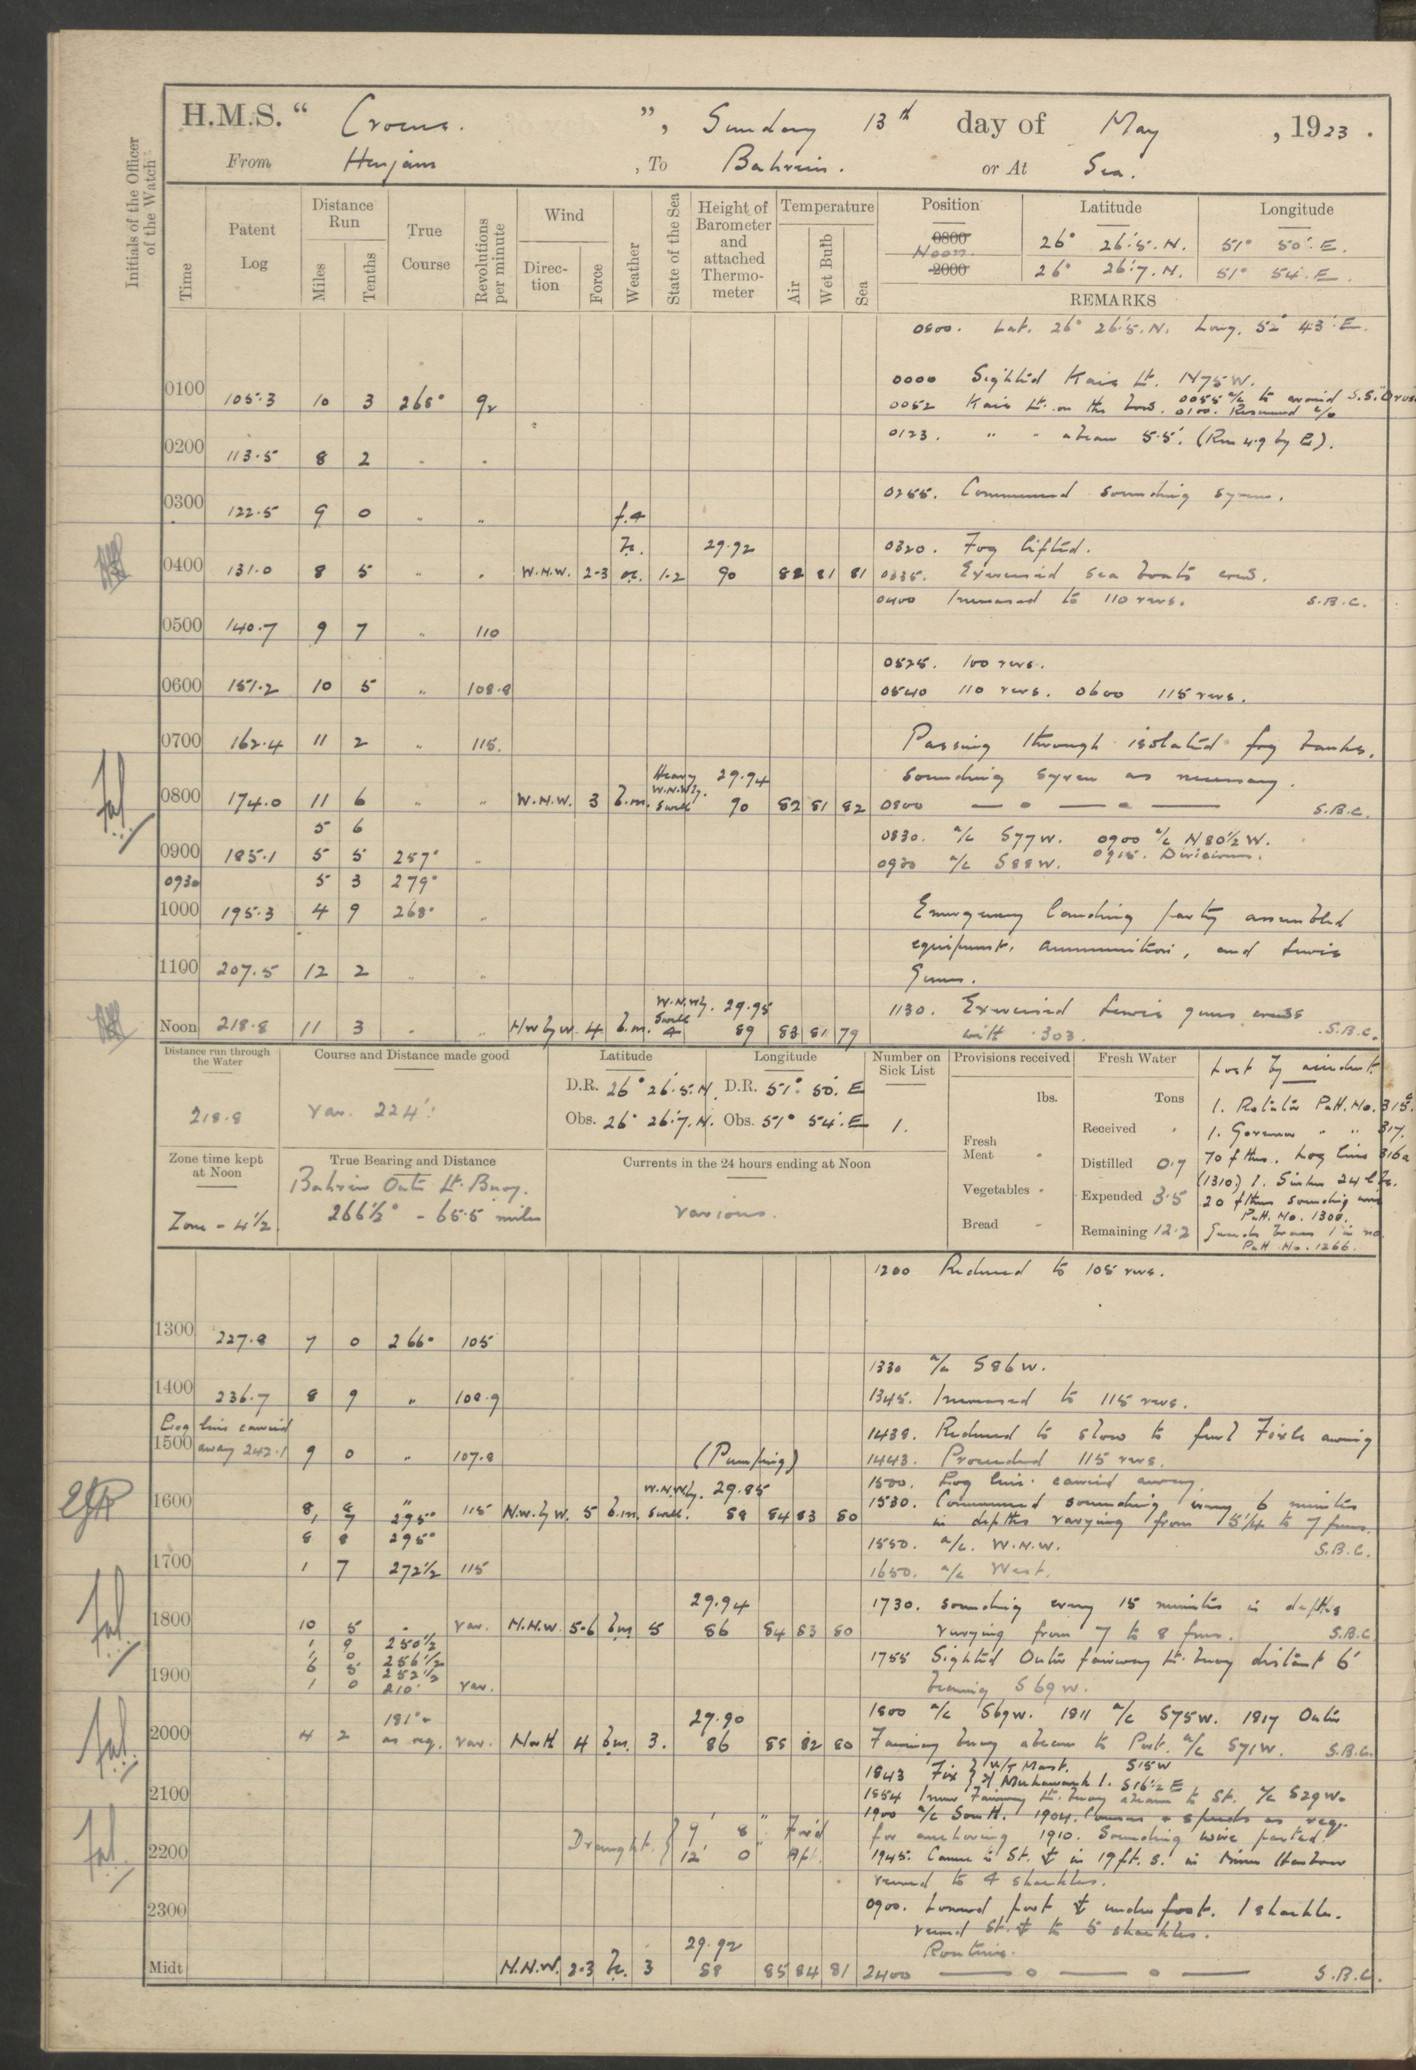 H.M.S. " Crocus. ", Sunday 13th day of May , 1923 .
From Henjam , To Bahrein. or At Sea.
Initials of the Officer of the Watch
Time
Patent Log
Distance Run
Miles
Tenths
True Course
Revolutions per minute
Wind
Direction
Force
Weather
State of the Sea
Height of Barometer and attached Thermometer
Temperature
Air
Wet Bulb
Sea
Position Latitude Longitude
0800 26° 26'.5.N. 51° 50'.E.
Noon.
2000 26° 26'.7.N. 51° 54'.E.
REMARKS
0800. Lat. 26° 26'.5.N. Long. 52° 43'.E.
0000 Sighted Kais Lt. N75W.
0100 105.3 10 3 268° 92
0052 Kais Lt. on the bow. 0055 a/c to avoid S.S.
0100. Resumed c/o
0123. " " abeam 5.5'. (Run 4.9 by E).
0200 113.5 8 2 " "
0255. Commenced sounding syren.
0300 122.5 9 0 " " f.4
0320. Fog lifted.
0400 131.0 8 5 " " W.N.W. 2-3 1-2 29.92 90 82 81 81
0335. Exercised sea boats crews.
0400 Increased to 110 revs. S.B.C.
0500 140.7 9 7 " 110
0525. 100 revs.
0600 151.2 10 5 " 108.8
0540 110 revs. 0600 115 revs.
0700 162.4 11 2 " 115.
Passing through isolated fog banks.
sounding syren as necessary.
0800 174.0 11 6 " " W.N.W. 3 b.m. Heavy W.N.Wly. Swell 29.94 90 82 81 82
0800 S.B.C.
5 6
0830. a/c S77W. 0900 a/c N80½W.
0900 185.1 5 5 257° "
0915. Divisions.
0930 a/c S88W.
0930 5 3 279°
1000 195.3 4 9 268° "
Emergency landing party assembled
equipment, ammunition, and Lewis
Guns.
1100 207.5 12 2 " "
1130. Exercised Lewis guns crews
with .303. S.B.C.
Noon 218.8 11 3 " " NW by W 4 b.m. W.N.Wly. Swell 4 29.95 89 83 81 79
Distance run through the Water
218.8
Course and Distance made good
Var. 224'.
Latitude
D.R. 26° 26'.5.N.
Obs. 26° 26'.7.N.
Longitude
D.R. 51° 50'. E
Obs. 51° 54'. E
Number on Sick List
1.
Provisions received
lbs.
Fresh Meat "
Vegetables "
Bread "
Fresh Water
Tons
Received "
Distilled 0.7
Expended 3.5
Remaining 12.2
Lost by accident.
1. Rotator Patt. No. 315
1. Governor " " 317.
70 fthms. Log line 316a
(1310) 1. Sinker 24 lbs.
20 fthms sounding wire
Patt. No. 1300.
Patt No. 1266.
Zone time kept at Noon
Zone - 4½
True Bearing and Distance
Bahrein Outer Lt. Buoy.
266½° - 65.5 miles
Currents in the 24 hours ending at Noon
various.
1200 Reduced to 105 revs.
1300 227.8 7 0 266° 105
1330 a/c S86W.
1400 236.7 8 9 " 108.9
1345. Increased to 115 revs.
Log line carried
away 242.1
1438. Reduced to slow to furl Fxle awning
1500 9 0 " 107.8 (Pumping)
1443. Proceeded 115 revs.
1500. Log line carried away.
1530. Commenced sounding every 6 minutes
in depths varying from 5¼ to 7 fms.
1600 8 7 295° 115 N.W. by W. 5 b.m. W.N.Wly. Swell. 29.85 88 84 83 80
8 8 295°
1550. a/c. W.N.W. S.B.C.
1700 1 7 272½ 115
1650. a/c West.
1730. sounding every 15 minutes in depths
varying from 7 to 8 fms. S.B.C.
1800 10 5 " var. N.N.W. 5-6 b.m. 5 29.94 86 84 83 80
1 9 250½
1 0 256½
6 5 252½
1755 Sighted Outer fairway Lt. buoy distant 6'
bearing S69W.
1900 1 0 210° var.
1800 a/c S69W. 1811 a/c S75W. 1817 Outer
Fairway buoy abeam to Port. a/c S71W. S.B.C.
2000 4 2 181° as req. var. North 4 b.m. 3. 29.90 86 85 82 80
1843 Fix W/T Mast. S15W
Muharrak I. S16½E
2100
1854 Inner Fairway Lt. buoy abeam to St. a/c S29W.
1900 a/c South. 1904. Courses & speeds as req.
for anchoring 1910. Sounding wire parted.
Draught. 9' 8" For'd
12' 0" Aft.
2200
1945. Came to St. in 19 ft. s. in Harbour
veered to 4 shackles.
2300
0900. Lowered port underfoot. 1 shackle.
veered St. to 5 shackles.
Routine.
Midt N.N.W. 2-3 3 29.92 88 85 84 81
2400 S.B.C.